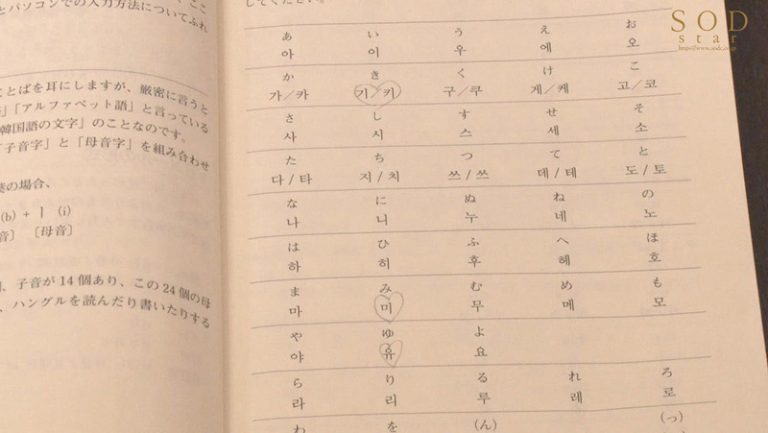 とパソコンでの入力方法についてふれ
ことばを耳にしますが、厳密に言うと
「アルファベット語」と言っている
韓国語の文字」のことなのです。
「子音字」と「母音字」を組み合わせ
の場合、
(b) + ㅣ (i)
音］ ［母音］
子音が 14 個あり、この 24 個の母
、ハングルを読んだり書いたりする
してください。
あ い う え お
아 이 우 에 오
か き く け こ
가／카 기／키 구／쿠 게／케 고／코
さ し す せ そ
사 시 스 세 소
た ち つ て と
다 / 타 지 / 치 쓰 / 쓰 데 / 테 도 / 토
な に ぬ ね の
나 니 누 네 노
は ひ ふ へ ほ
하 히 후 헤 호
ま み む め も
마 미 무 메 모
や ゆ よ
야 유 요
ら り る れ ろ
라 리 루 레 로
わ を (ん) (っ)
SOD
star